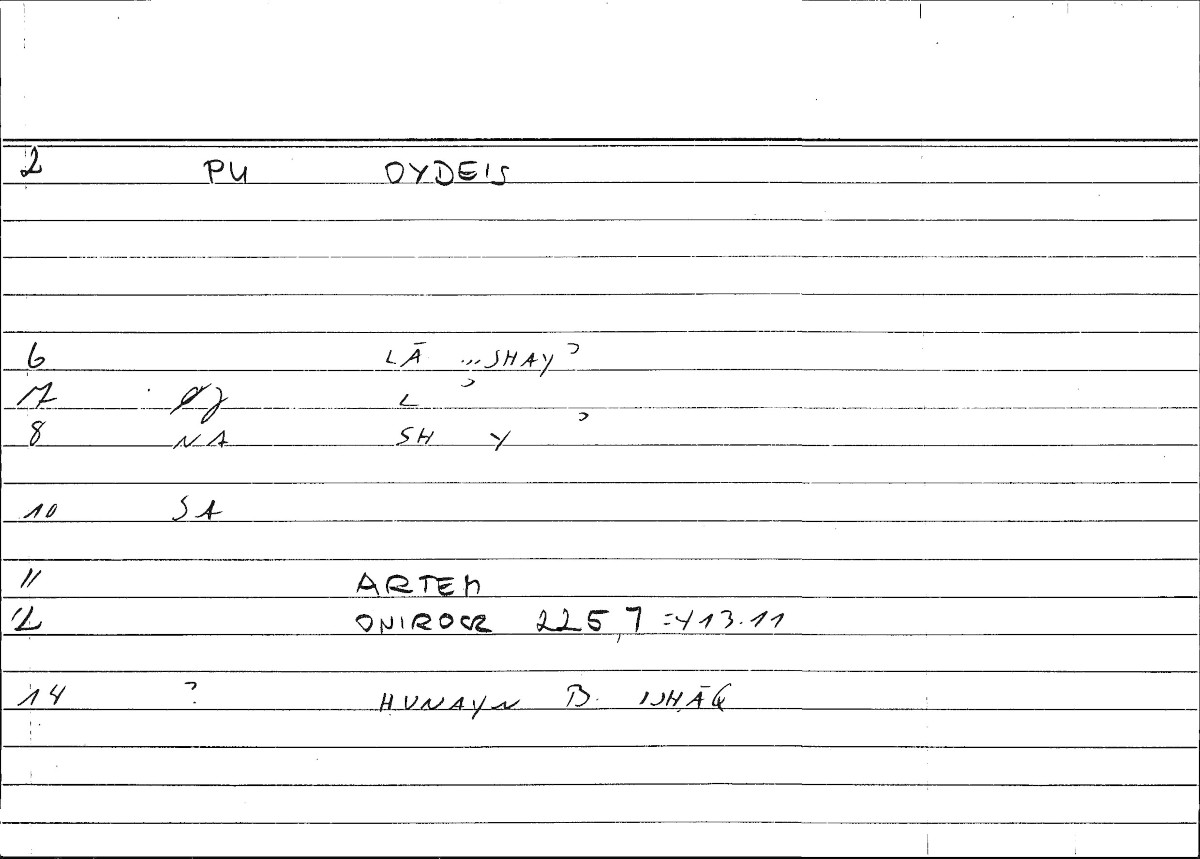 2 PU OYDEIS
6 LĀ ...SHAYʾ
7 Lʾ
8 NA SH Yʾ
10 SA
11 ARTEM
12 ONIROCR 225,7 = 413.11
14 ? ḤUNAYN B. ISḤĀQ